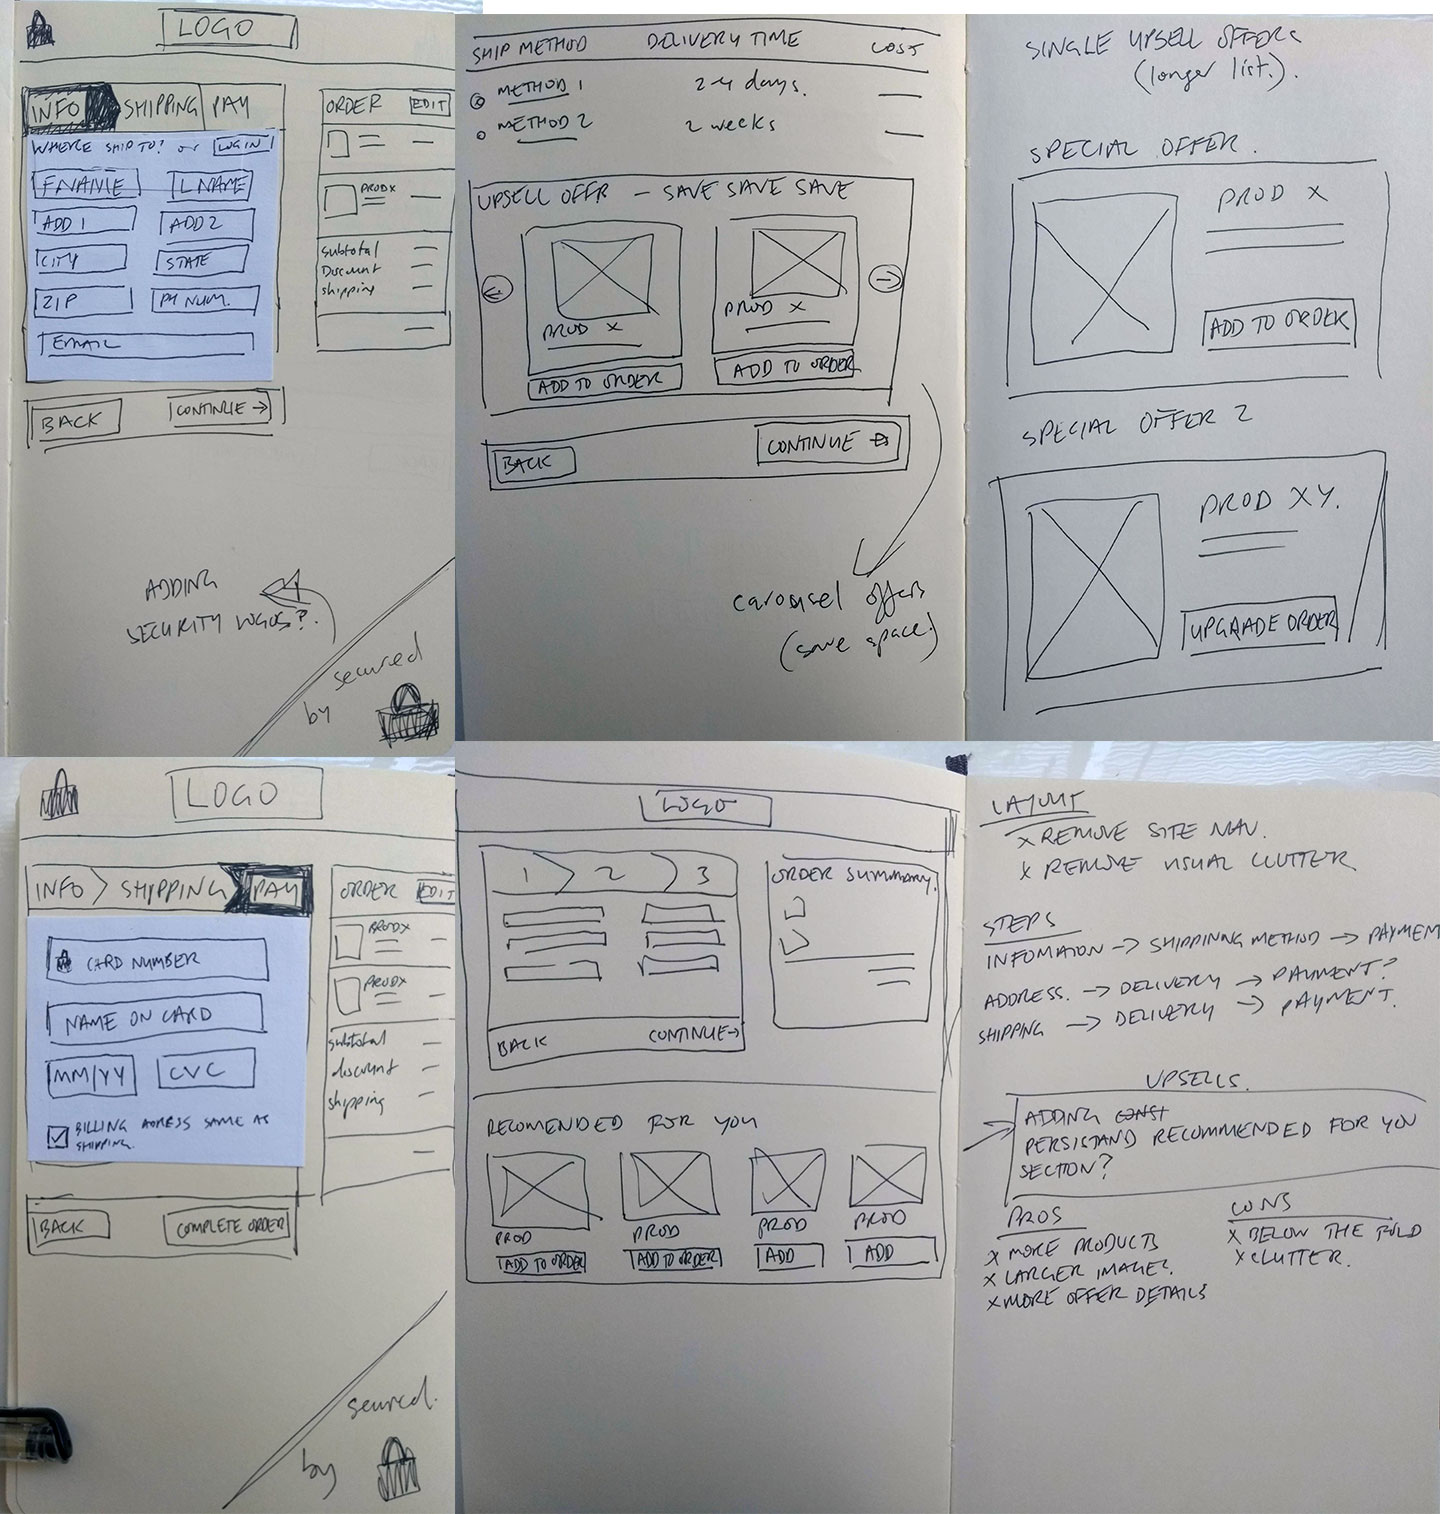 LOGO
INFO SHIPPING PAY
WHERE SHIP TO? or LOGIN
F NAME L NAME
ADD 1 ADD 2
CITY STATE
ZIP PH NUM.
EMAIL
BACK CONTINUE →
ORDER EDIT
PRODX
subtotal
Discount
shipping
ADDING
SECURITY LOGOS?
secured
by
SHIP METHOD DELIVERY TIME COST
METHOD 1 2-4 days.
METHOD 2 2 weeks
UPSELL OFFR — SAVE SAVE SAVE
PROD X PROD X
ADD TO ORDER ADD TO ORDER
BACK CONTINUE →
carousel offers
(save space.)
SINGLE UPSELL OFFERS
(longer list.).
SPECIAL OFFER.
PROD X
ADD TO ORDER
SPECIAL OFFER 2
PROD XY.
UPGRAADE ORDER
LOGO
INFO > SHIPPING PAY
CARD NUMBER
NAME ON CARD
MM/YY CVC
BILLING ADRESS SAME AS
SHIPPING.
BACK COMPLETE ORDER
ORDER EDIT
PRODX
PRODX
subtotal
discount
shipping
secured.
by
LOGO
1 2 3
BACK CONTINUE→
ORDER SUMMARY.
RECOMENDED FOR YOU
PROD PROD PROD PROD
ADD TO ORDER ADD TO ORDER ADD ADD
LAYOUT
x REMOVE SITE NAV.
x REMOVE VISUAL CLUTTER
STEPS
INFOMATION → SHIPPINNG METHOD → PAYMEN
ADDRESS. → DELIVERY → PAYMENT?
SHIPPNG → DELIVERY → PAYMENT.
UPSELLS.
ADDING CONST
PERSISTAND RECOMMENDED FOR YOU
SECTION?
PROS
x MORE PRODUCTS
x LARGER IMAGES.
x MORE OFFER DETAILS
CONS
x BELOW THE FOLD
x CLUTTER.